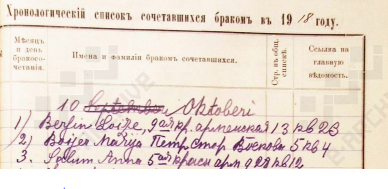 Хронологическій списокъ сочетавшихся бракомъ въ 1918 году.
Мѣсяцъ и день бракосо-четанія.
Имена и фамиліи бракомъ сочетавшихся.
Стр. въ общ. спискѣ.
Ссылка на главную вѣдомость.
10 Oktoberi
1) Berfin Loize, 9ая кр. армейская 13 кв 23
2) Boijer Marija Петр. стор. 5 кв 4
3. Anna 5ая красн арм д 28 кв 12
E-ARCHIVE